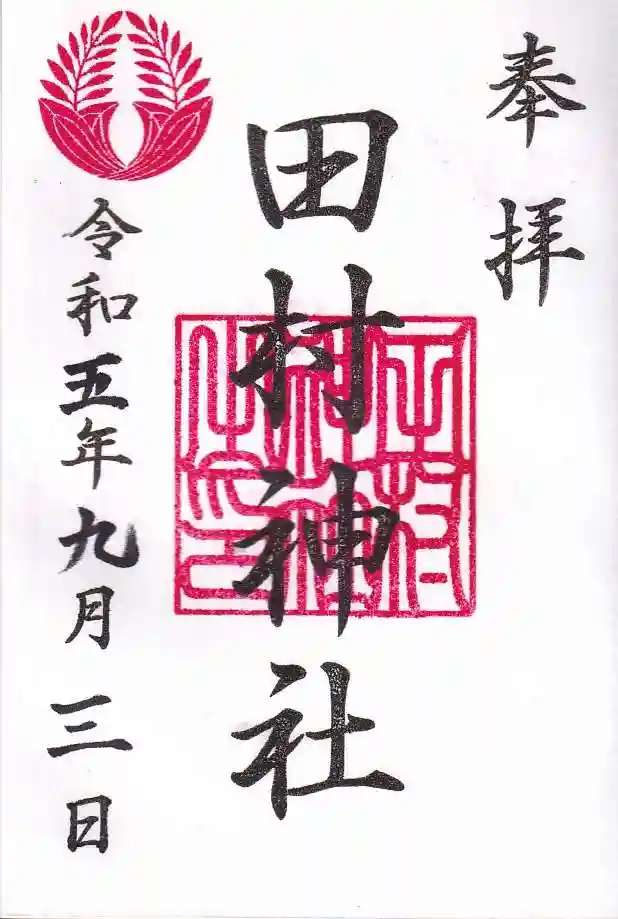 奉拝
田村神社
令和五年九月三日